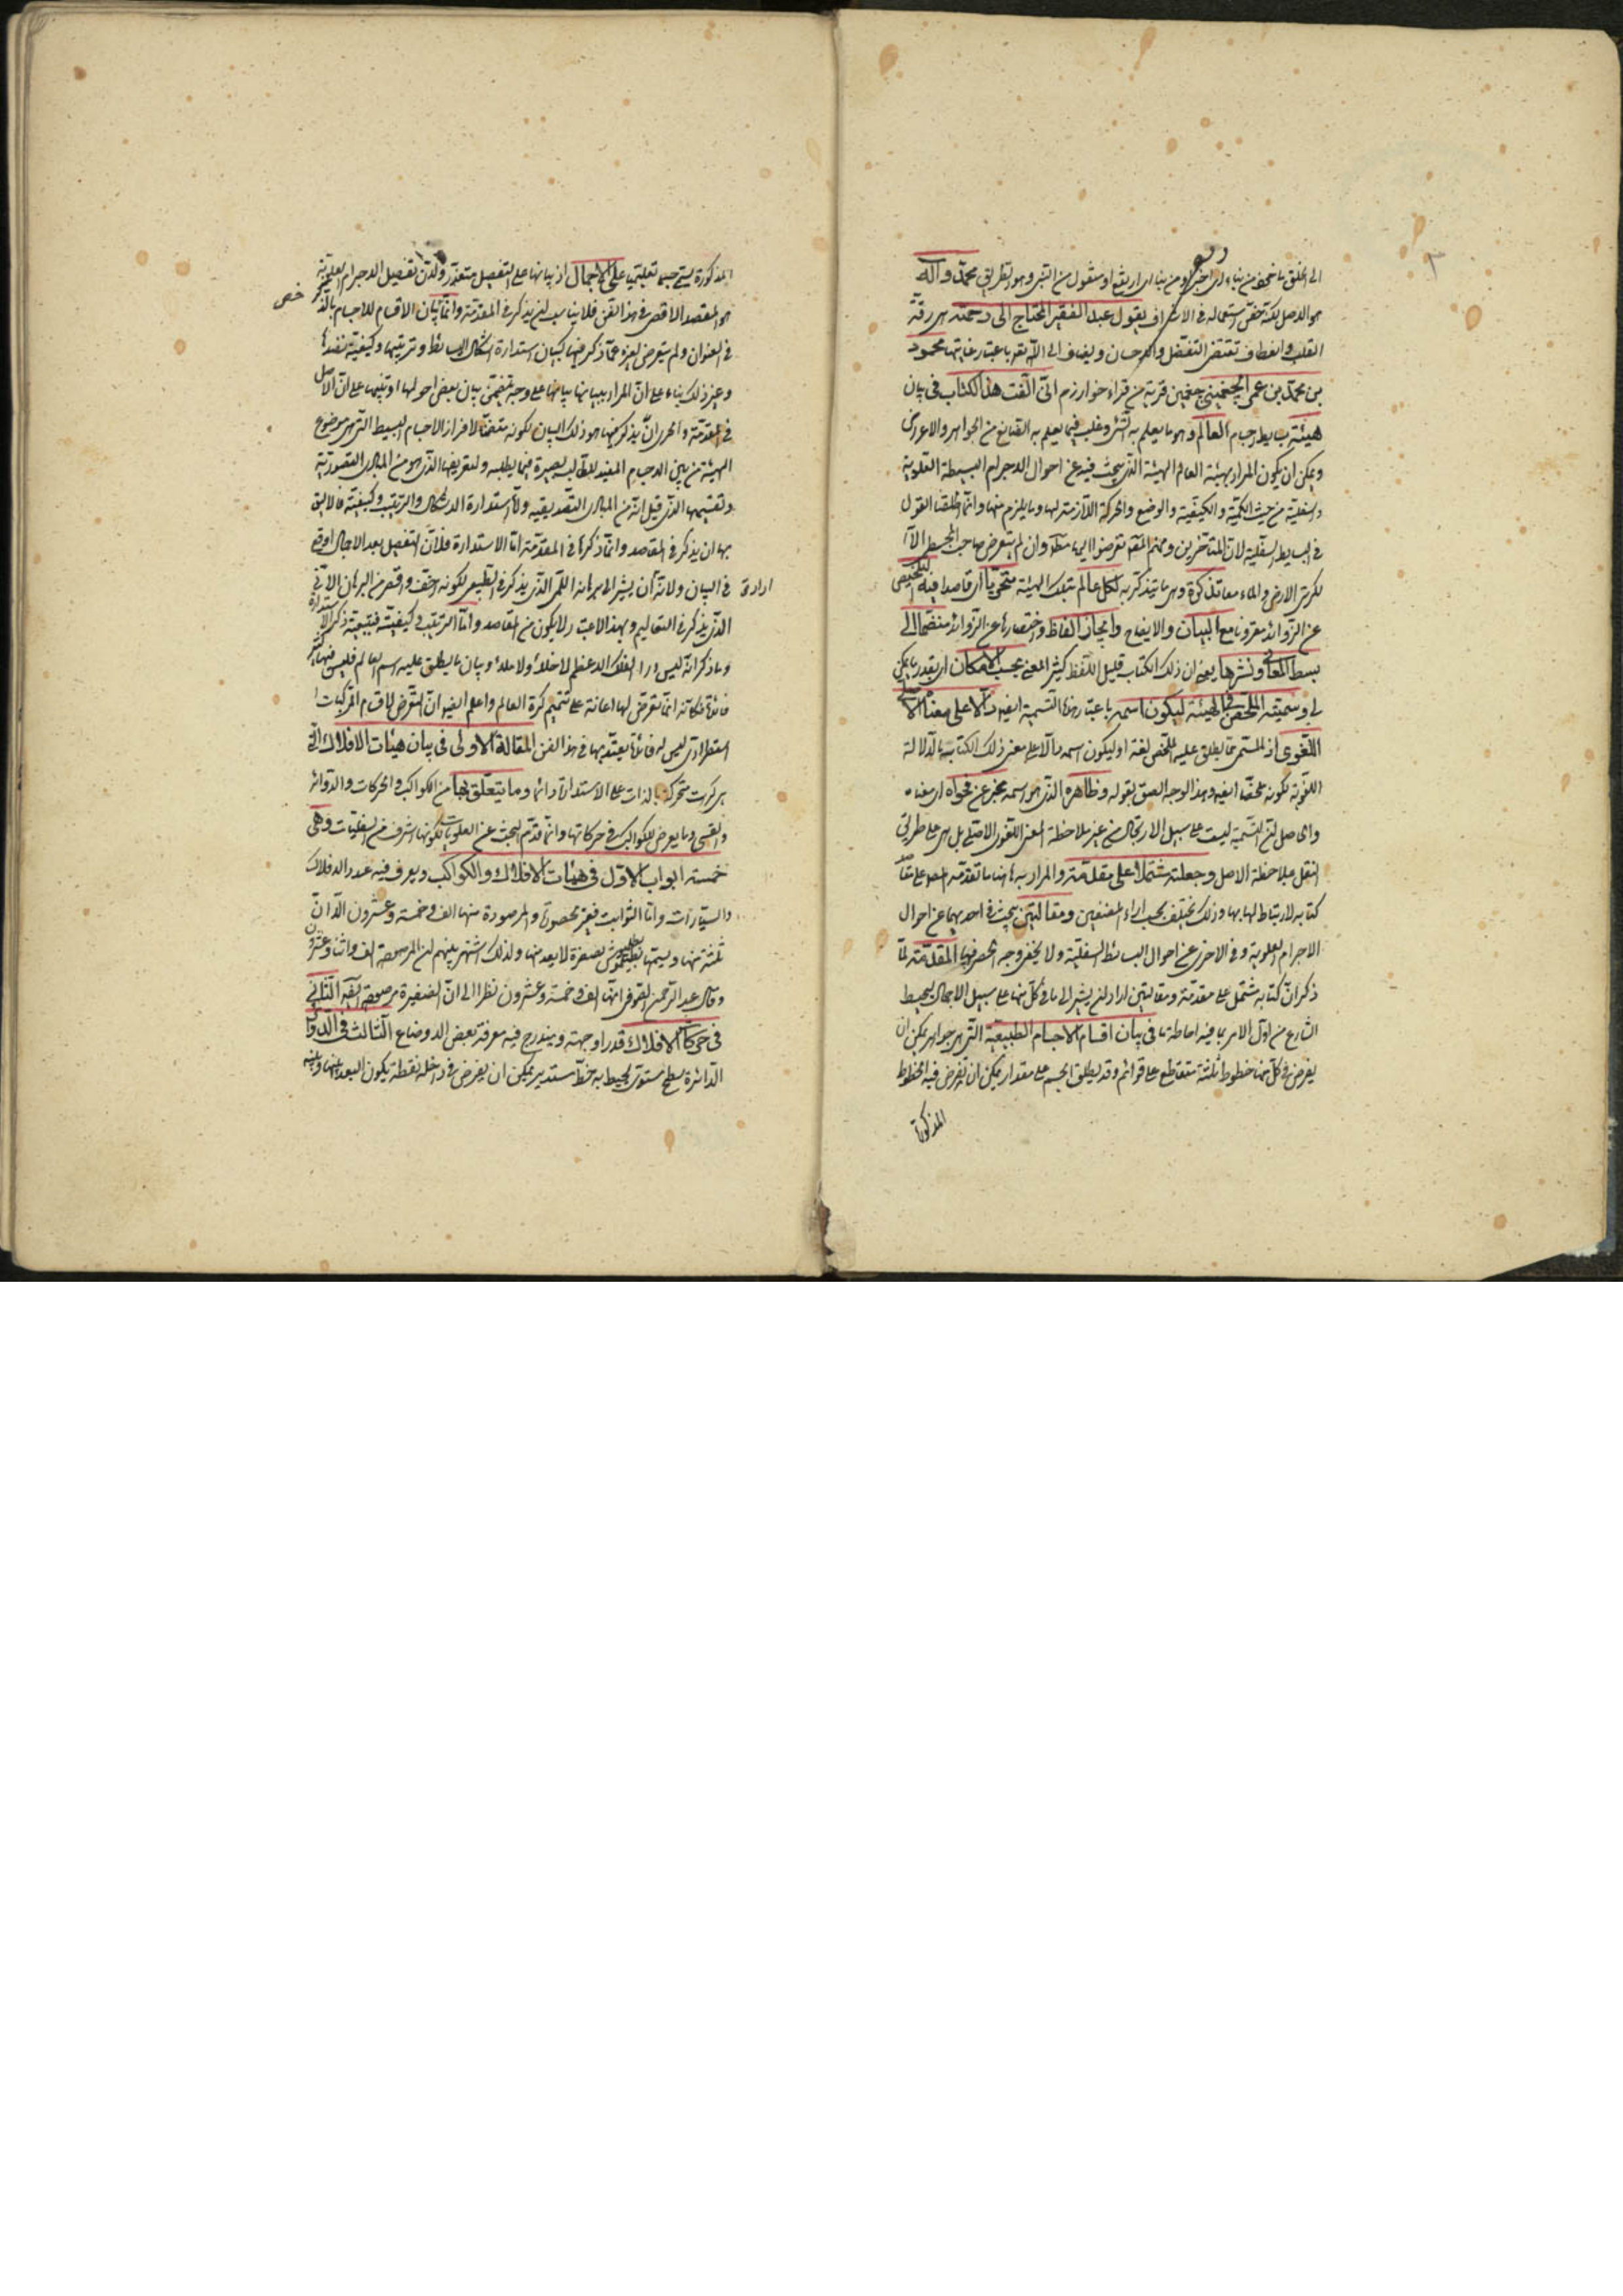 ٣
الى الخلق ما خوذ من نباء اى اخبر او من نبا اى ارتفع او منقول من النبى وهو الطريق محمد وآله
هو الاصل لكنه خص استعماله فى الاشراف يقول عبد الفقير المحتاج الى رحمته هى رقة
القلب وانعطاف تقتضى التفضل والاحسان ويضاف الى الله تعالى باعتبار غايتها محمود
بن محمد بن عمر الجغمينى جغمين قرية من قراء خوارزم انى الفت هذا الكتاب فى بيان
هيئة بسايط اجسام العالم وهو ما يعلم به الشئ وغلب فيما يعلم به الصانع من الجواهر والاعراض
ويمكن ان يكون المراد بهيئة العالم الهيئة التى يبحث فيه عن احوال الاجرام البسيطة العلوية
والسفلية من حيث الكمية والكيفية والوضع والحركة اللازمة لها وما يلزم منها وانما اطلقنا القول
فى البسايط السفلية لان المتأخرين ومنهم المص تعرضوا لها مط وان لم يتعرض صاحب المجسطى الا
لكرتى الارض والماء تذكرة وهى ما يتذكر به لكل عالم بتلك الهيئة متحريا اى قاصدا فيه التلخيص
عن الزوائد مقرونا مع البيان والايضاح وايجاز الفاظ واختصارها عن الزوائد منضما الى
بسط المعانى ونشرها يعنى ان ذلك الكتاب قليل اللفظ كثير المعنى بحسب الامكان اى بقدر ما يمكن
لى وسميته الملخص فى الهيئة ليكون اسمه باعتبار هذا التسمية ايضا دالا على معناه الاصلى
اللغوى اذ المسمى مما يطلق عليه الملخص لغة او ليكون اسمه دالا على معنى ذلك الكتاب بالدلالة
اللغوية لكونه ملخصا ايضا وهذا الوجه الصق بقوله وظاهره الذى هو اسمه مخبر عن فحواه اى معناه
والحاصل ان التسمية ليست على سبيل الارتجال من غير ملاحظة المعنى اللغوى الاصلى بل هى على طريق
النقل بملاحظة الاصل وجعلته مشتملا على مقدمة والمراد بها هنا ما تقدمه المص على مقاصد
كتابه لارتباط لها بها وذلك يختلف بحسب اراء المصنفين ومقالتين يبحث فى احديهما عن احوال
الاجرام العلوية وفى الاخرى عن احوال البسائط السفلية ولا يخفى وجه الحصر فيها المقدمة لما
ذكر ان كتابه مشتمل على مقدمة ومقالتين اراد ان يشير الى ما فى كل منها على سبيل الاجمال ليحيط
الشارع من اول الامر بما فيه احاطة ما فى بيان اقسام الاجسام الطبيعية التى هى جواهر يمكن ان
يفرض فى كل منها خطوط ثلثة متقاطع على قوائم وقد يطلق الجسم على مقدار يمكن ان تفرض فيه الخطوط
المذكورة
المذكورة يسمى جسما تعليميا على الاجمال اذ بيانها على التفصيل متعذر ولان تفصيل الاجرام العلوية
هو المقصد الاقصى فى هذا الفن فلا يناسب ان يذكر فى المقدمة وانما بيان الاقسام للاجسام بالذكر
خص
فى العنوان ولم يتعرض لغيره مما ذكر فيها كبيان استدارة اشكال البسائط وترتيبها وكيفية نضدها
وغير ذلك بناء على ان المراد ببيانها بيانها على وجه يتضمن بيان بعض احوالها او تنبيها على ان الاصل
فى المقدمة والحرى ان يذكر فيها هو ذلك البيان لكونه متضمنا لافراز الاجسام البسيط التى هى موضوع
الهيئة من بين الاجسام المفيد للطالب بصيرة فيما يطلبه ولتعريفها الذى هو من المبادى التصورية
وتقسيمها الذى قيل انه من المبادى التصديقية واما استدارة الاشكال والترتيب وكيفيته فاللايق
بها ان يذكر فى المقاصد وانما ذكرها فى المقدمة اما الاستدارة فلان التفصيل بعد الاجمال اوقع
فى البيان ولانه اراد ان يشير الى برهانه اللمى الذى يذكر فى الطبيعى لكونه اخف واخصر من البرهان الانى
الذى يذكر فى التعاليم وبهذا الاعتبار لا يكون من المقاصد واما الترتيب وكيفيته فبتبعية ذكر الاستدارة
وما ذكر انه ليس وراء الفلك الاعظم لا خلاء ولا ملاء وبيان ما يطلق عليه اسم العالم فليس فيها كثير
فائدة فكانه انما تعرض لها اعانة على تتميم كرة العالم واعلم ايضا ان التعرض لاقسام المركبات
استطرادى ليس له فائدة يعتد بها فى هذا الفن المقالة الاولى فى بيان هيئات الافلاك التى
هى كرات متحركة بالذات على الاستدارة دائما وما يتعلق بها من الكواكب والحركات والدوائر
والقسى وما يعرض للكواكب فى حركاتها وانما قدم البحث عن العلويات لكونها اشرف من السفليات وهى
خمسة ابواب الاول فى هيئات الافلاك والكواكب ويعرف فيه عدد الافلاك
والسيارات واما الثوابت فغير محصورة والمرصودة منها الف وخمسة وعشرون الا ان
ثلثة منها ويسمها بطلميوس بصغرة لا يعد منها ولذلك اشتهر بينهم ان المرصودة الف واثنا وعشرون
وقال عبد الرحمن الصوفى انها الف وخمسة وعشرون نظرا الى ان الضفيرة مرصودة ايضا الثانى
فى حركات الافلاك قدرا وجهة ويندرج فيه معرفة بعض الاوضاع الثالث فى الدوائر
الدائرة سطح مستوى يحيط به خط مستدير يمكن ان يفرض فى داخله نقطة يكون البعد بينها وبينه